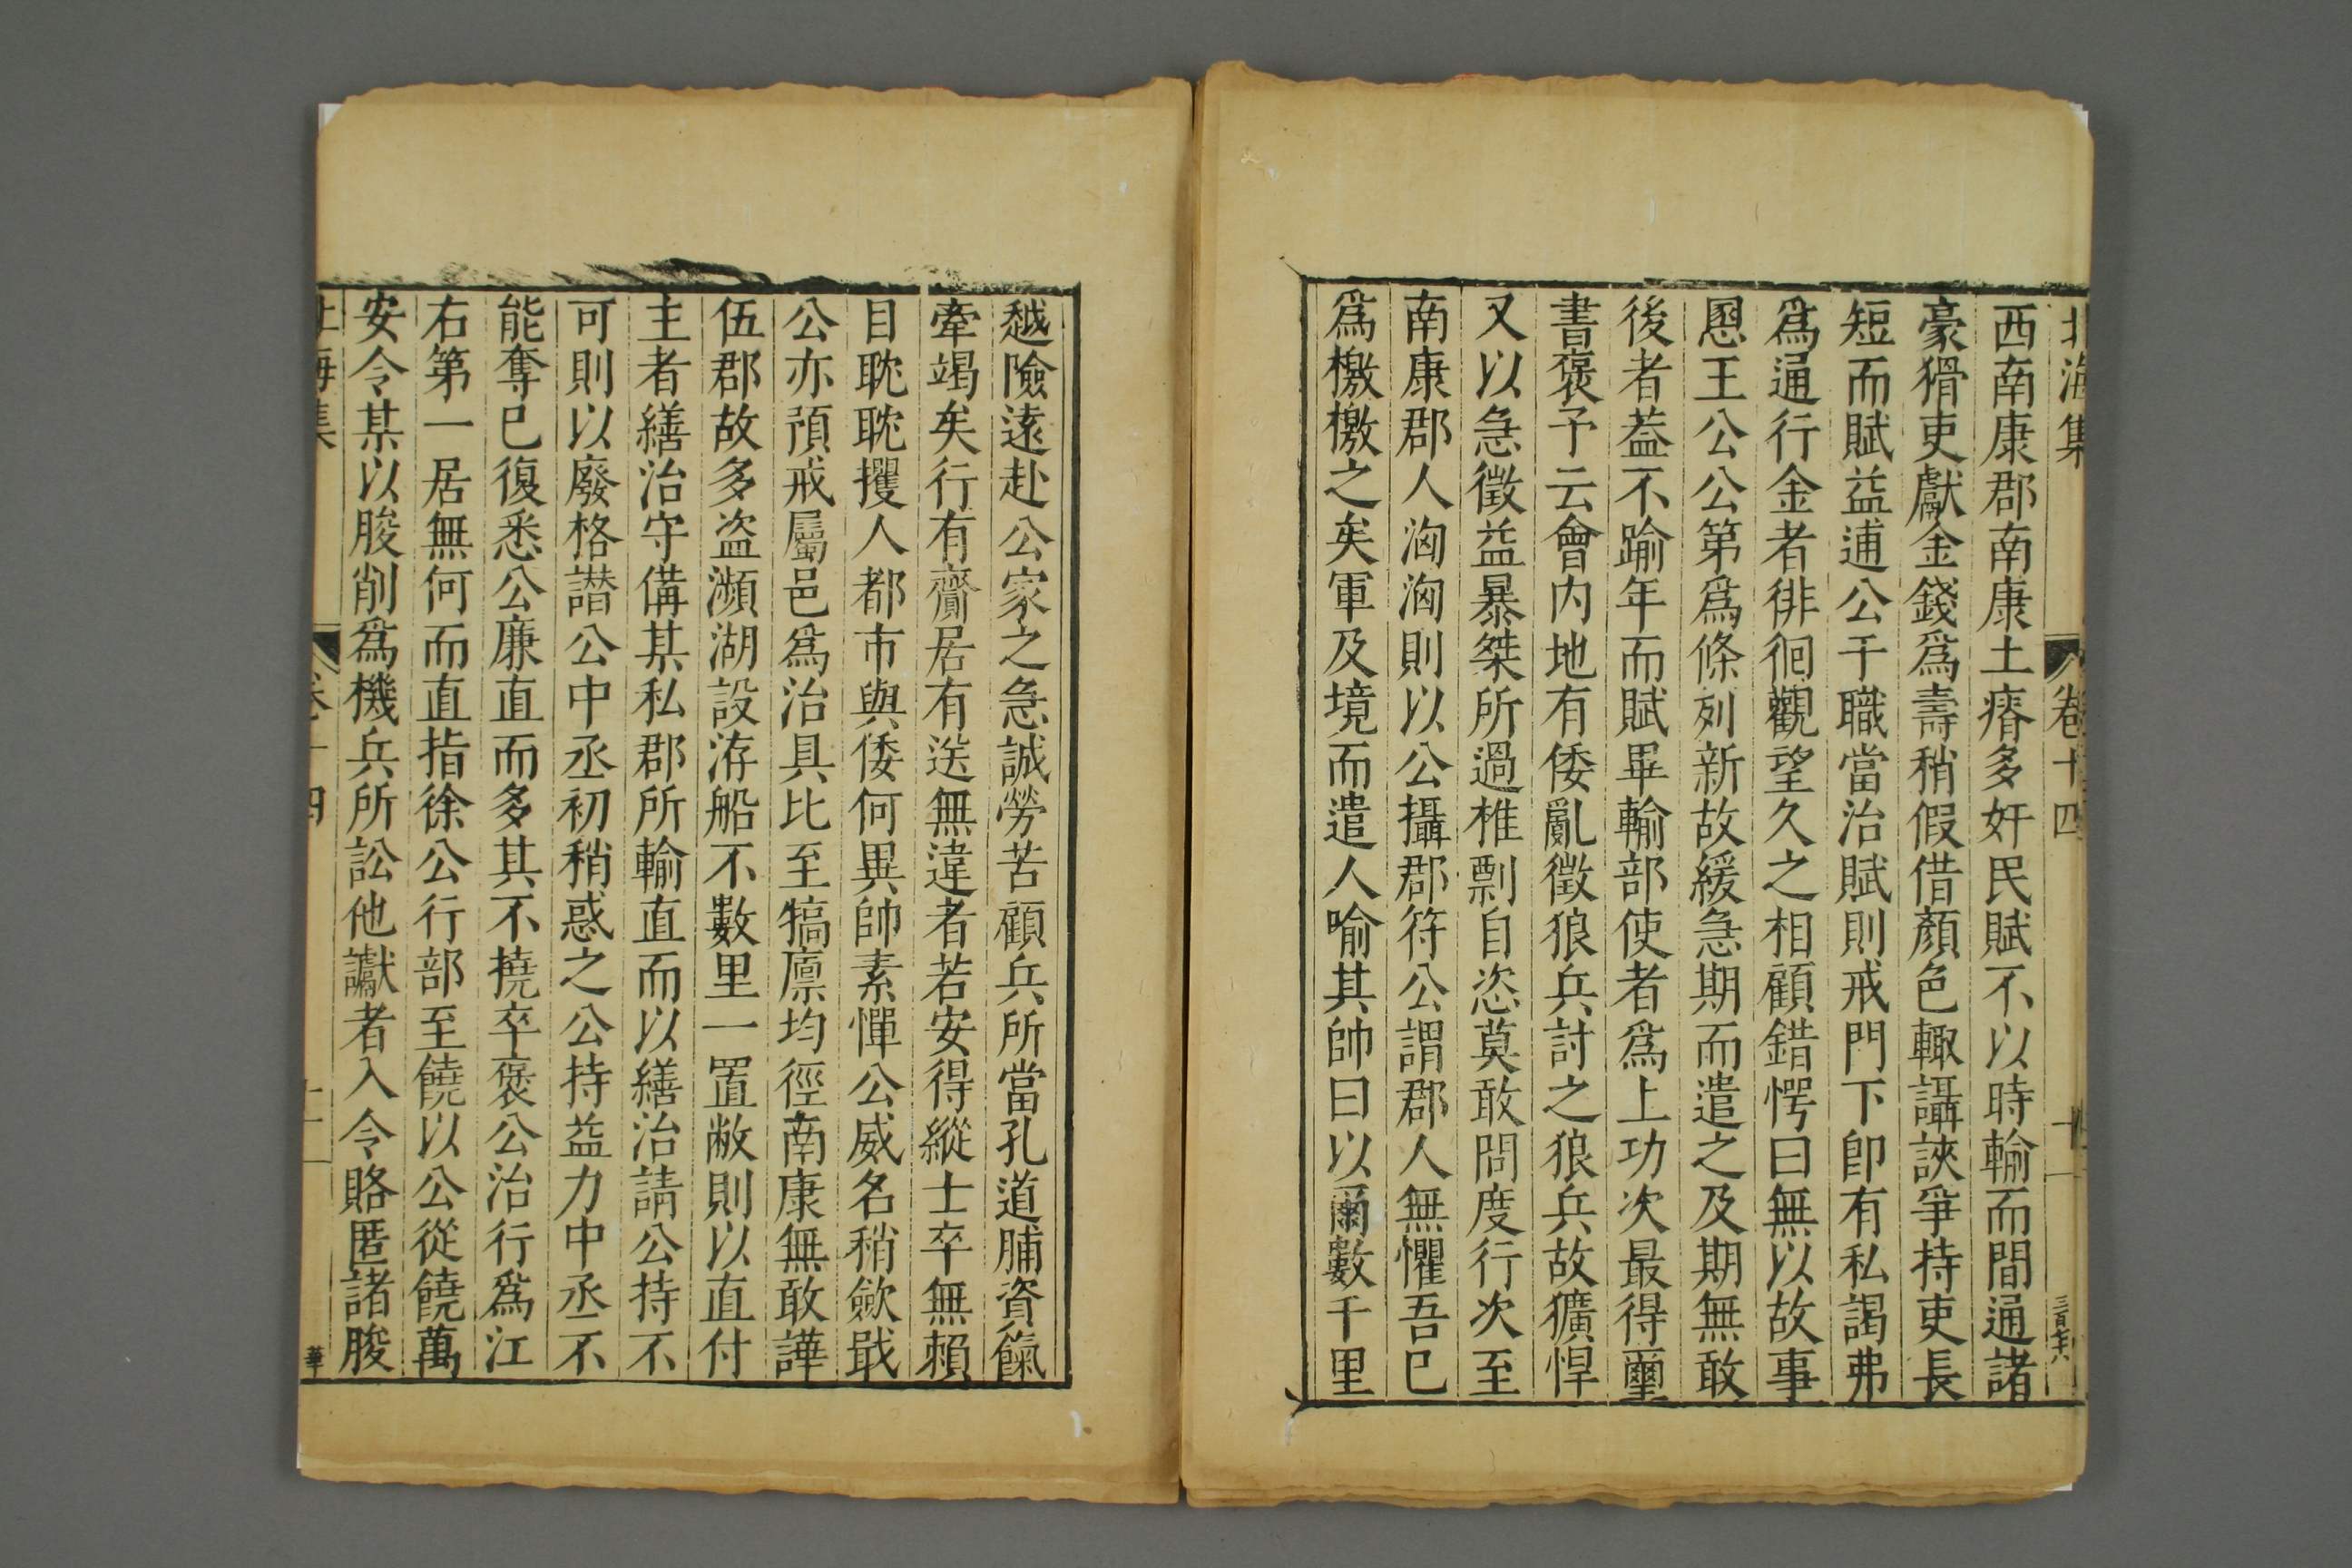 北海集 卷十四
西南康郡南康土瘠多奸民賦不以時輸而間通諸
豪猾吏獻金錢爲壽稍假借顏色輙讘諛爭持吏長
短而賦益逋公于職當治賦則戒門下卽有私謁弗
爲通行金者徘徊觀望久之相顧錯愕曰無以故事
慁王公公第爲條列新故緩急期而遣之及期無敢
後者葢不踰年而賦畢輸部使者爲上功次最得璽
書褒予云會内地有倭亂徵狼兵討之狼兵故獷悍
又以急徵益暴桀所過椎剽自恣莫敢問度行次至
南康郡人洶洶則以公攝郡符公謂郡人無懼吾已
爲檄檄之矣軍及境而遣人喻其帥曰以爾數千里
越險遠赴公家之急誠勞苦顧兵所當孔道脯資餼
牽竭矣行有齎居有送無違者若安得縱士卒無賴
目眈眈攫人都市與倭何異帥素憚公威名稍歛戢
公亦預戒屬邑爲治具比至犒廪均徑南康無敢譁
伍郡故多盗瀕湖設洊船不數里一置敝則以直付
主者繕治守俻其私郡所輸直而以繕治請公持不
可則以廢格譖公中丞初稍惑之公持益力中丞不
能奪已復悉公廉直而多其不撓卒褒公治行爲江
右第一居無何而直指徐公行部至饒以公從饒萬
安令某以朘削爲機兵所訟他讞者入令賂匿諸朘
北海集 卷十四
華